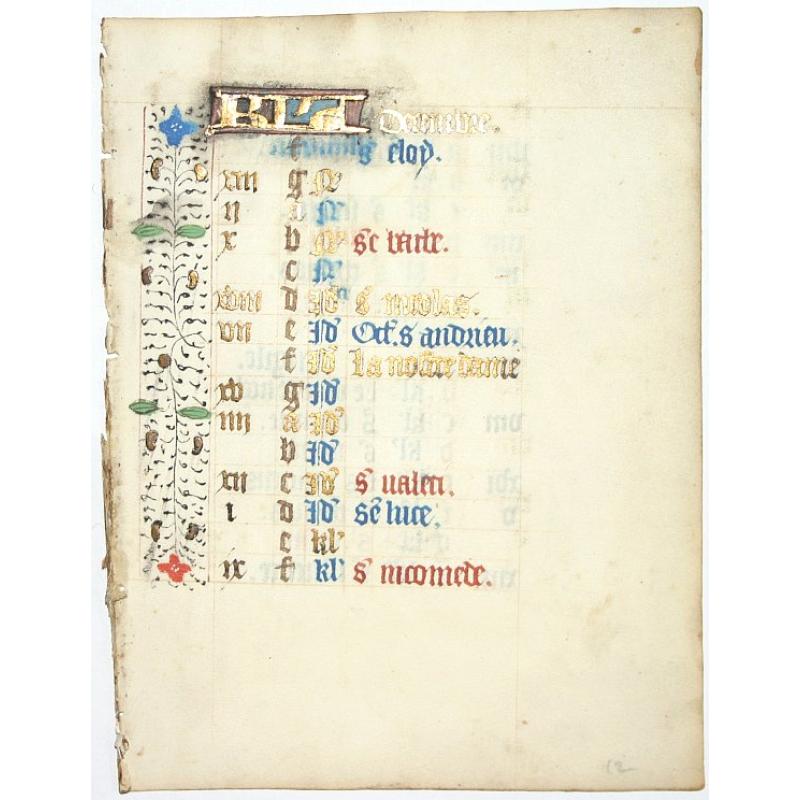 KL Decembre.
f eloy.
xiii g N
ii a N
x b N Se barbe.
c N
xviii d Id S nicolas.
vii e Id Oct. s andrieu.
f Id La nostre dame
xv g Id
iiii a Id
b Id
xii c Id S valeri.
i d Id Se luce.
e kl
ix f kl S nicomede.
12